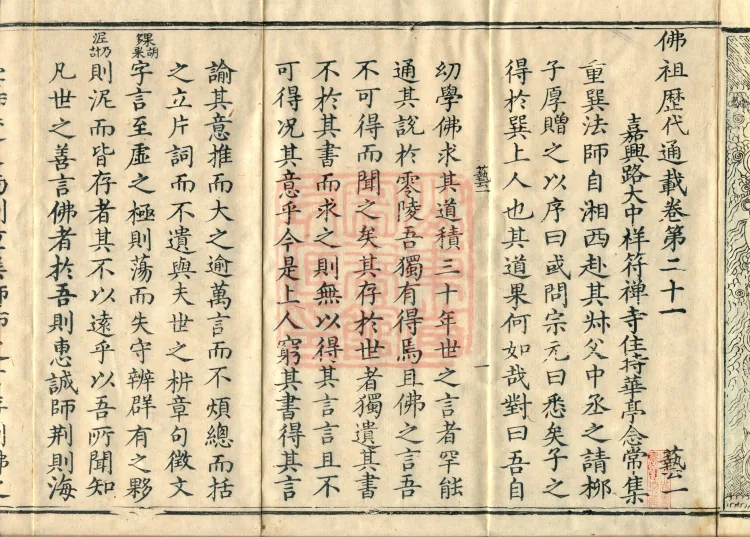 佛祖歷代通載卷第二十一 藝一
嘉興路大中祥符禪寺住持華亭念常集
重巽法師自湘西赴其叔父中丞之請栁
子厚贈之以序曰或問宗元曰悉矣子之
得於巽上人也其道果何如哉對曰吾自
藝一 一
幼學佛求其道積三十年世之言者罕能
通其說於零陵吾獨有得焉且佛之言吾
不可得而聞之矣其存於世者獨遺其書
不於其書而求之則無以得其言言且不
可得況其意乎今是上人窮其書得其言
諭其意推而大之逾萬言而不煩總而括
之立片詞而不遺與夫世之析章句徵文
字言至虛之極則蕩而失守辨群有之夥胡果
則泥乃計而皆存者其不以遠乎以吾所聞知
凡世之善言佛者於吾則惠誠師荆則海